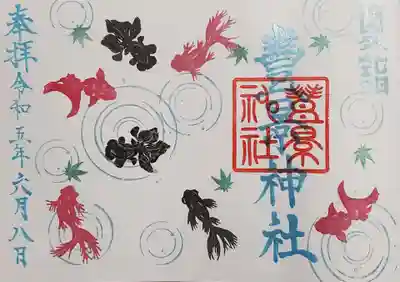 豊景神社
豊景
神社
奉拝 令和五年六月八日